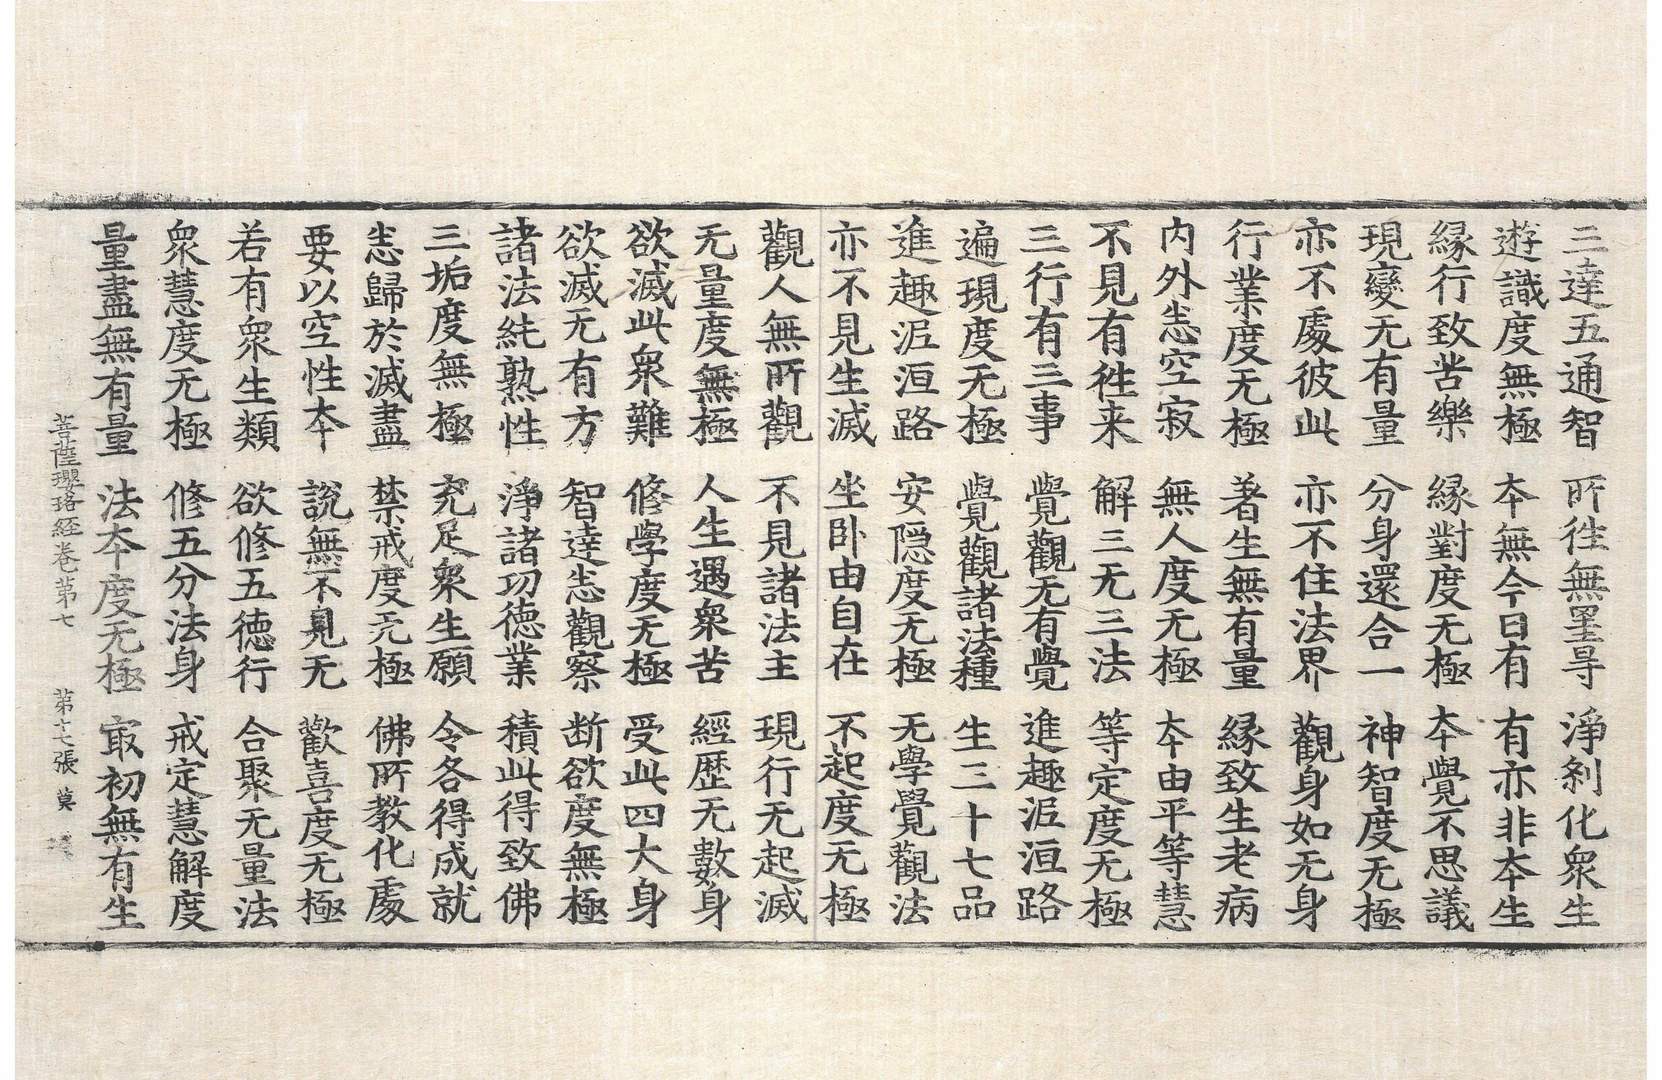 三達五通智 所往無罣㝵 淨剎化衆生
遊識度無極 本無今日有 有亦非本生
縁行致苦樂 縁對度无極 本覺不思議
現變无有量 分身還合一 神智度无極
亦不處彼此 亦不住法界 觀身如无身
行業度无極 著生無有量 縁致生老病
内外悉空寂 無人度无極 本由平等慧
不見有往来 解三无三法 等定度无極
三行有三事 覺觀无有覺 進趣泥洹路
遍現度无極 覺觀諸法種 生三十七品
進趣泥洹路 安隠度无極 无學覺觀法
亦不見生滅 坐卧由自在 不起度无極
觀人無所觀 不見諸法主 現行无起滅
无量度無極 人生遇衆苦 經歷无數身
欲滅此衆難 修學度无極 受此四大身
欲滅无有方 智達悉觀察 断欲度無極
諸法純熟性 淨諸功德業 積此得致佛
三垢度無極 充足衆生願 令各得成就
悉歸於滅盡 禁戒度无極 佛所教化處
要以空性本 說無不見无 歡喜度无極
若有衆生類 欲修五德行 合聚无量法
衆慧度无極 修五分法身 戒定慧解度
量盡無有量 法本度无極 最初無有生
菩薩瓔珞經卷第七 第十七張 莫